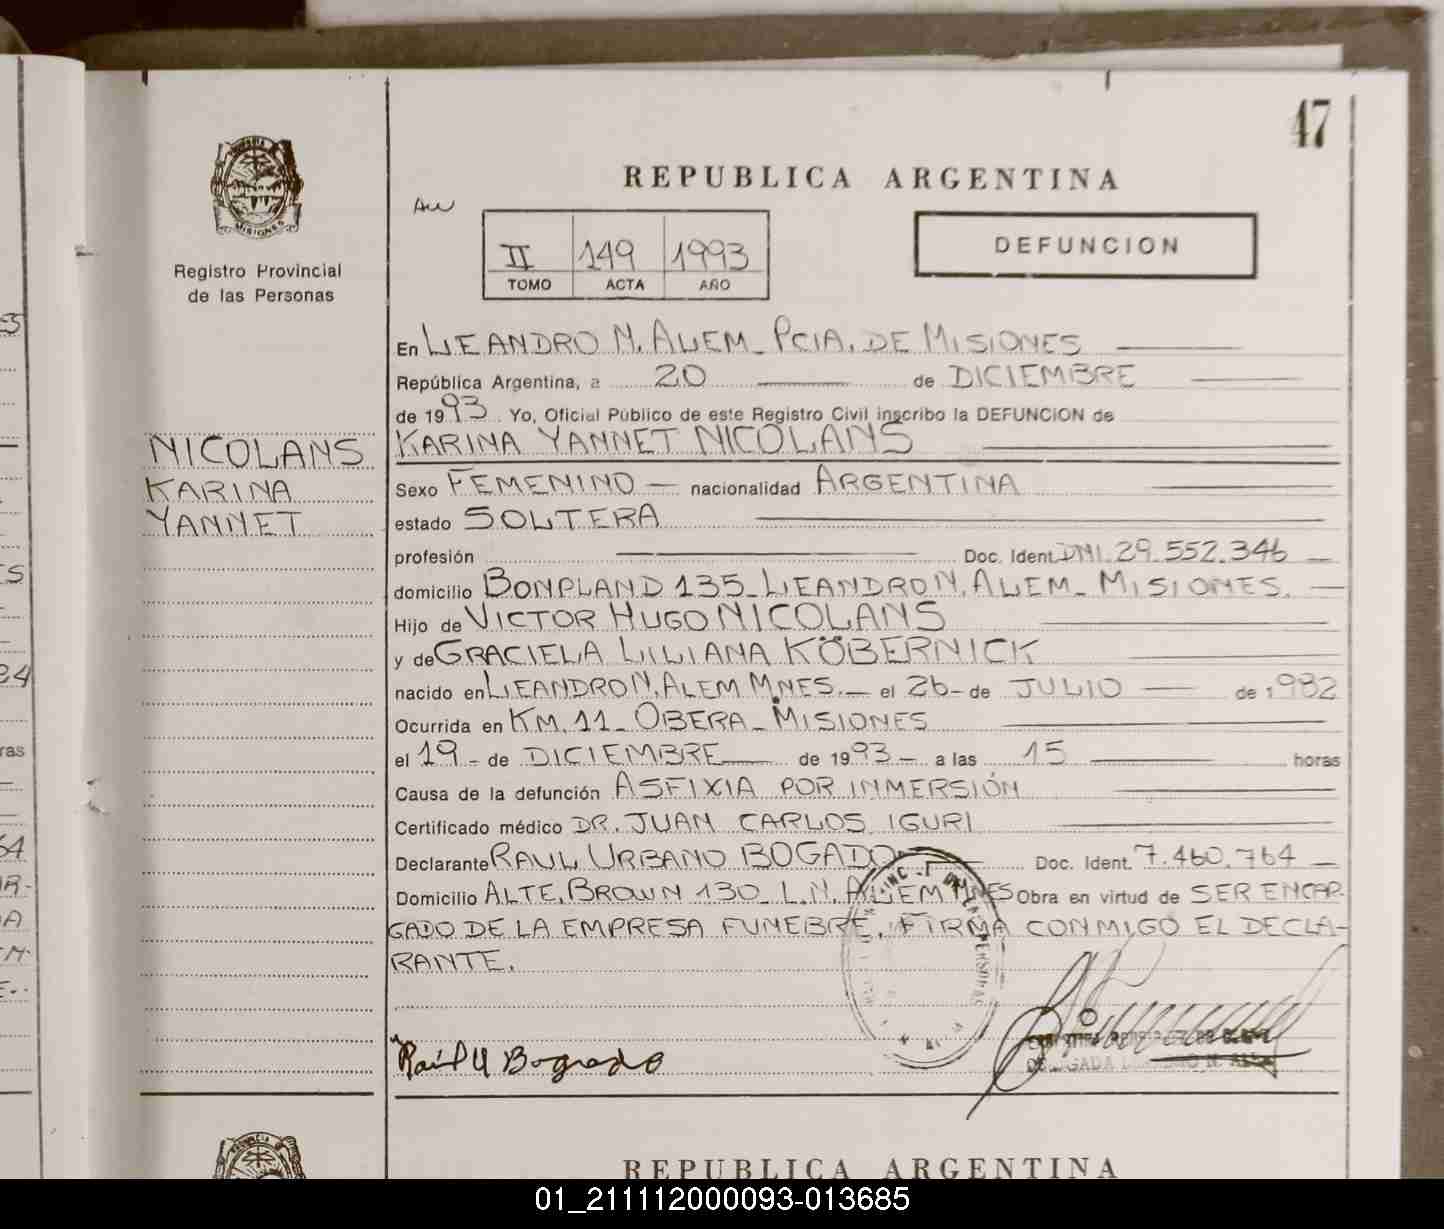 47
REPUBLICA ARGENTINA
PROVINCIA DE
MISIONES
Registro Provincial
de las Personas
II 149 1993
TOMO ACTA AÑO
DEFUNCION
En LEANDRO N. ALEM - PCIA. DE MISIONES
República Argentina, a 20 de DICIEMBRE
de 1993. Yo, Oficial Público de este Registro Civil inscribo la DEFUNCION de
KARINA YANNET NICOLANS
NICOLANS
KARINA
YANNET
Sexo FEMENINO — nacionalidad ARGENTINA
estado SOLTERA
profesión Doc. Ident. DNI. 29.552.346
domicilio BONPLAND 135 - LEANDRO N. ALEM - MISIONES.
Hijo de VICTOR HUGO NICOLANS
y de GRACIELA LILIANA KÖBERNICK
nacido en LEANDRO N. ALEM MNES. — el 26 - de JULIO — de 1982
Ocurrida en KM. 11 - OBERA - MISIONES
el 19 - de DICIEMBRE de 1993 - a las 15 horas
Causa de la defunción ASFIXIA POR INMERSIÓN
Certificado médico DR. JUAN CARLOS IGURI
Declarante RAUL URBANO BOGADO Doc. Ident. 7.460.764
Domicilio ALTE. BROWN 130 - L.N. ALEM MNES Obra en virtud de SER ENCAR-
GADO DE LA EMPRESA FUNEBRE. FIRMA CONMIGO EL DECLA-
RANTE.
Raúl U Bogado
REPUBLICA ARGENTINA
01_211112000093-013685